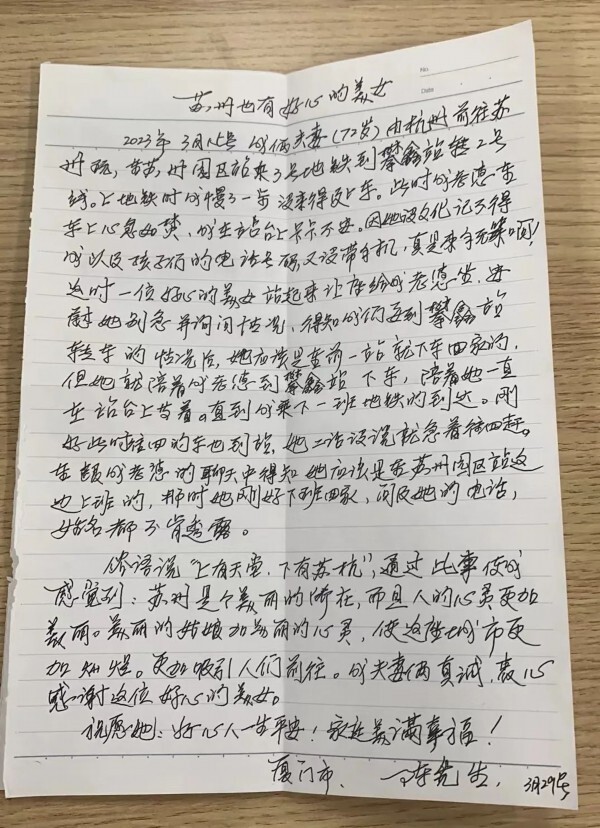 No
Date
苏州也有好心的美女
2023年3月 号 我俩夫妻(72岁)由杭州前往苏
州玩,在苏州园区站乘3号地铁到攀鑫站转2号
线。上地铁时我慢了一步没来得及上车。此时我老憁在
车上心急如焚,我在站台上忐忑不安。因她没文化记不得
我以及孩子们的电话号码,又没带手机,真是束手无策啊!
这时一位好心的美女站起来让座给我老憁坐,安
慰她别急并询问情况,得知我们要到攀鑫站
转车的情况后,她应该是在前一站就下车回家的,
但她就陪着我老憁到攀鑫站下车,陪着她一直
在站台上等着。直到我乘下一班地铁的到达。刚
好此时往回的车也到站,她二话没说就急着往回赶。
在跟我老憁的聊天中得知她应该是在苏州园区站这
边上班的,那时她刚好下班回家,问及她的电话,
姓名都不肯透露。
俗语说"上有天堂,下有苏杭",通过此事使我
感觉到:苏州是个美丽的所在,而且人的心灵更加
美丽。美丽的姑娘加美丽的心灵,使这座城市更
加灿烂。更加吸引人们前往。我夫妻俩真诚,衷心
感谢这位好心的美女。
祝愿她:好心人一生平安!家庭美满幸福!
厦门市、 陈先生,
3月29号